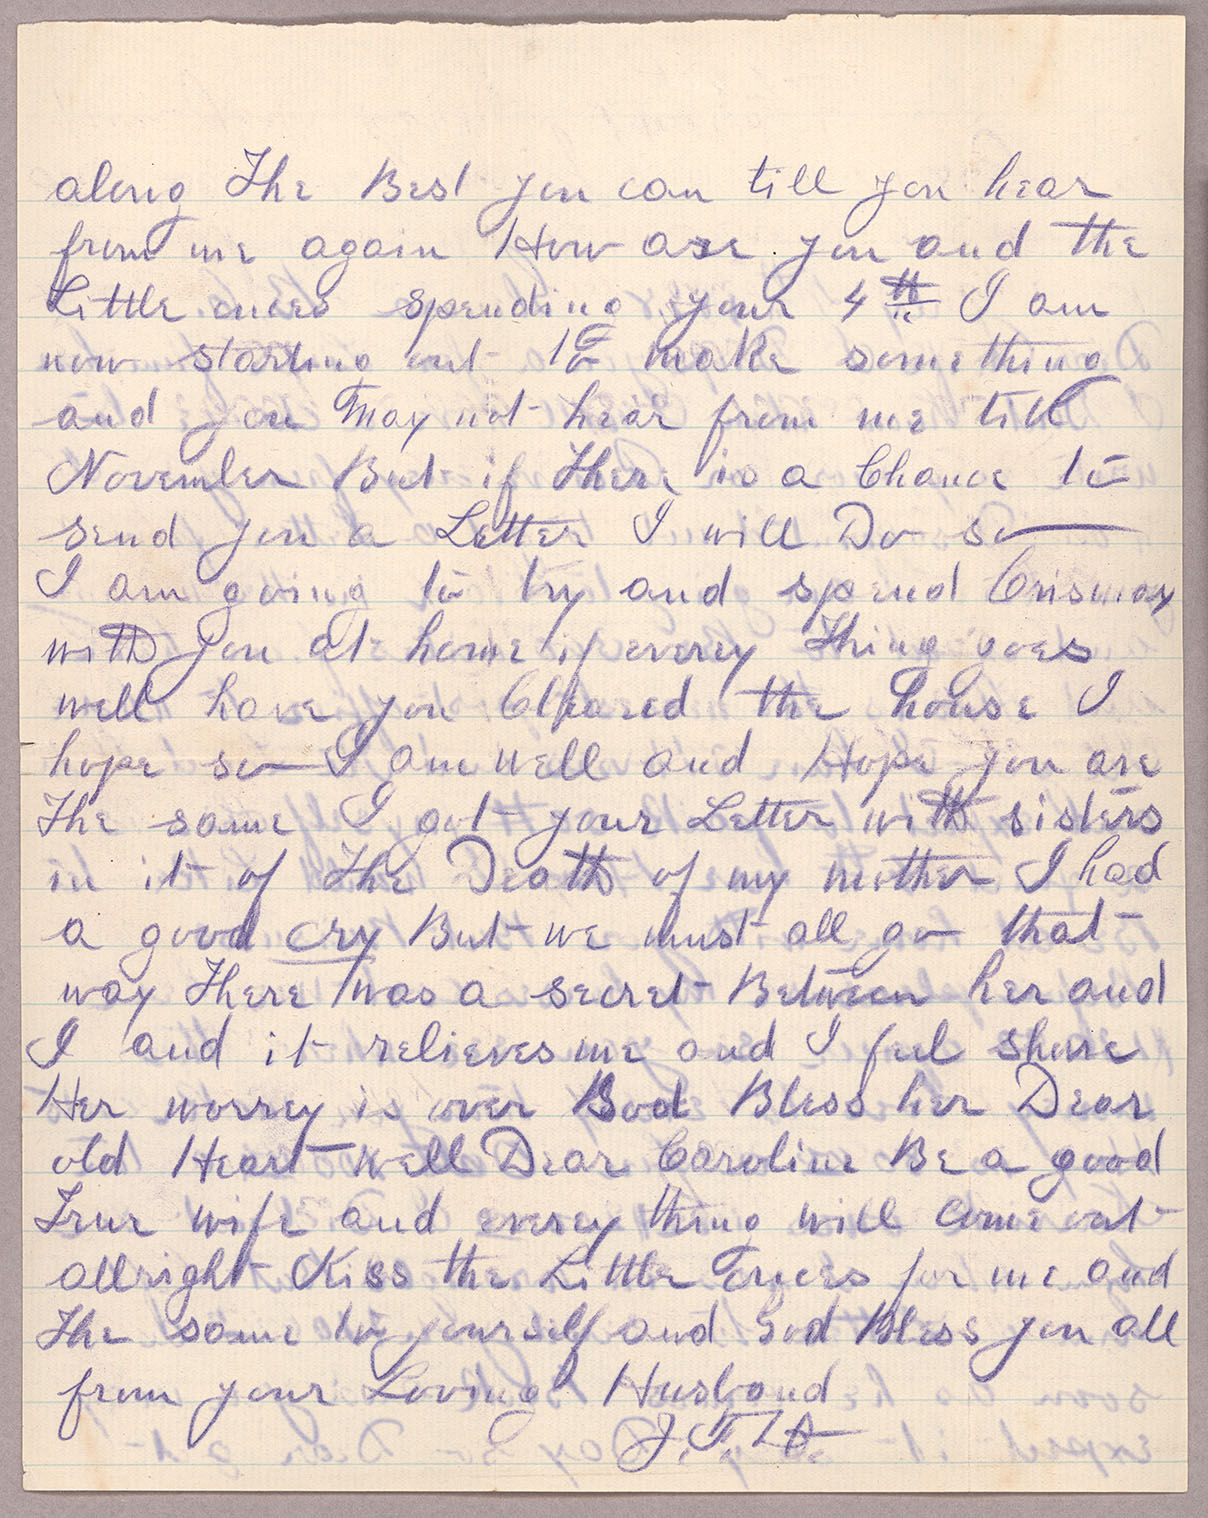 along The Best you can till you hear
from me again How are you and the
Little ones spending your 4th I am
now starting out to make something
and you May not hear from me till
November But if There is a Chance to
send you a Letter I will Do so
I am going to try and spend Crismax
with you at home if everey Thing goes
well have you Cleared the house I
hope so I am well and Hope you are
The same I got your Letter with sisters
in it of The Death of my mother I had
a good cry But we must all go that
way There was a secret Between her and
I and it relieves me and I feel shure
Her worrey is over God Bless her Dear
old Heart Well Dear Caroline Be a good
True wife and everey thing will come out
allright Kiss the Little ones for me and
The same to yourself and God Bless you all
from your Loving Husband
J.T.